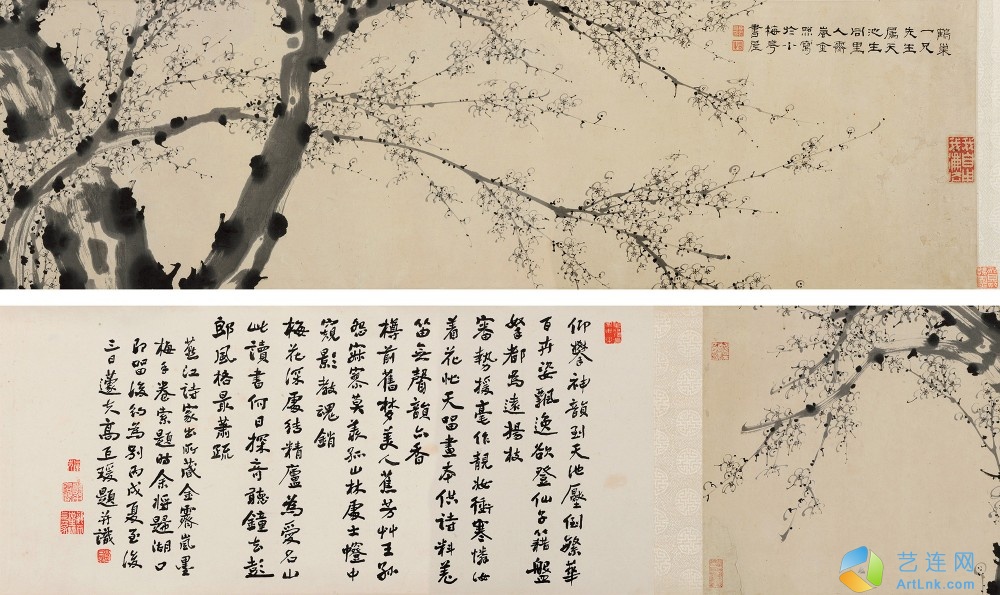 鶴巢
一兄
先生
属天
池生
同里
人霽
嵐金
照寫
於小
梅亭
書屋
仰攀神韻到天池壓倒繁華
百卉姿飄逸欲登仙子籍盤
拏都為遠揚枝
審執援毫作靚妝衝寒憐汝
着花忙天留畫本供詩料羌
笛無聲韻亦香
樽前舊梦美人蕉芳艸王孫
怨寂寥莫羨孤山林處士中
窺影教魂銷
梅花深處結精廬為愛名山
此讀書何日探奇聽鐘去彭
郎風格最蕭疏
江詩家出所藏金霽嵐墨
梅手卷索題時余将歸湖口
即留後約為別丙戌夏至後
三日蘧夫高巨瑗題并識
艺连网
ArtLnk.com